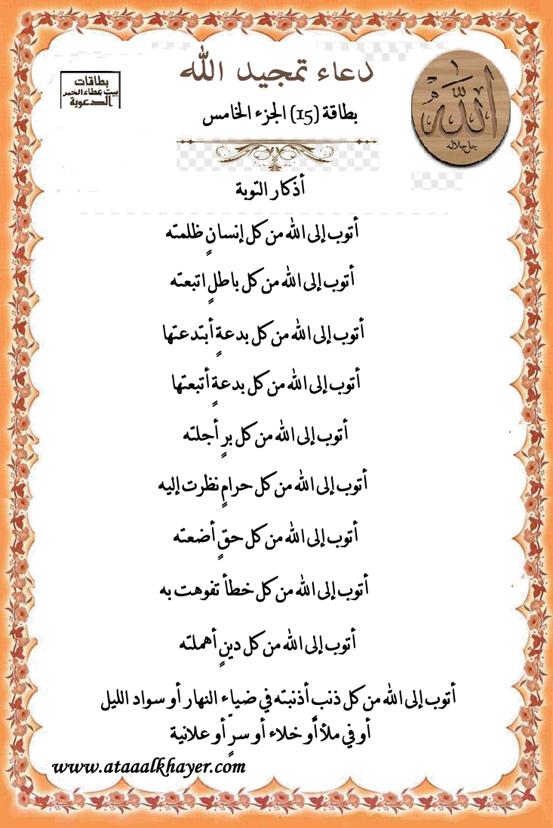 دعاء تمجيد الله
بطاقات
بيت عطاء الخير
الدعوية
الله
جل جلاله
بطاقة (15) الجزء الخامس
أذكار التوبة
أتوب إلى الله من كل إنسانٍ ظلمته
أتوب إلى الله من كل باطلٍ اتبعته
أتوب إلى الله من كل بدعةٍ أبتدعتها
أتوب إلى الله من كل بدعةٍ أتبعتها
أتوب إلى الله من كل برٍ أجلته
أتوب إلى الله من كل حرامٍ نظرت إليه
أتوب إلى الله من كل حقٍ أضعته
أتوب إلى الله من كل خطأ تفوهت به
أتوب إلى الله من كل دينٍ أهملته
أتوب إلى الله من كل ذنبٍ أذنبته في ضياء النهار أو سواد الليل
أو في ملأ أو خلاء أو سرٍّ أو علانية
www.ataaalkhayer.com